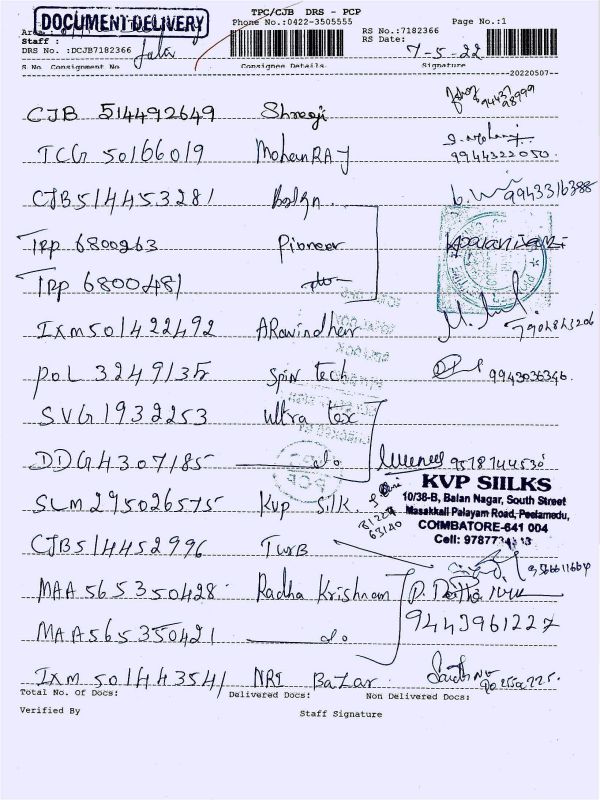 DOCUMENT DELIVERY
TPC/CJB DRS - PCP
Phone No.:0422-3505555
Page No.:1
RS No.:7182366
RS Date: 7-5-22
Staff :
DRS No. :DCJB7182366
S No. Consignment No Consignee Details. Signature
20220507
CJB 514492649 Shreeji
TCG 50166019 MohanRAJ 9944322050
CJB514453281 9943316388
TRP 6800263 Pioneer
TRP 6800481 do
IXM501422492 ARavindhan
POL 3249135 Spin tech 9943036346
SVG1932253 Ultra tex
DDG4307185 do 9578744530
KVP SIILKS
10/38-B, Balan Nagar, South Street
Masakkali Palayam Road, Peelamedu,
COIMBATORE-641 004
SLM295026575 KVP Silk
CJB514452996 TWB
MAA565350428 Radha Krishnan
MAA565350421 do 9443961227
IXM 501443541 NRI Bazar
Total No. Of Docs: Delivered Docs: Non Delivered Docs:
Verified By Staff Signature